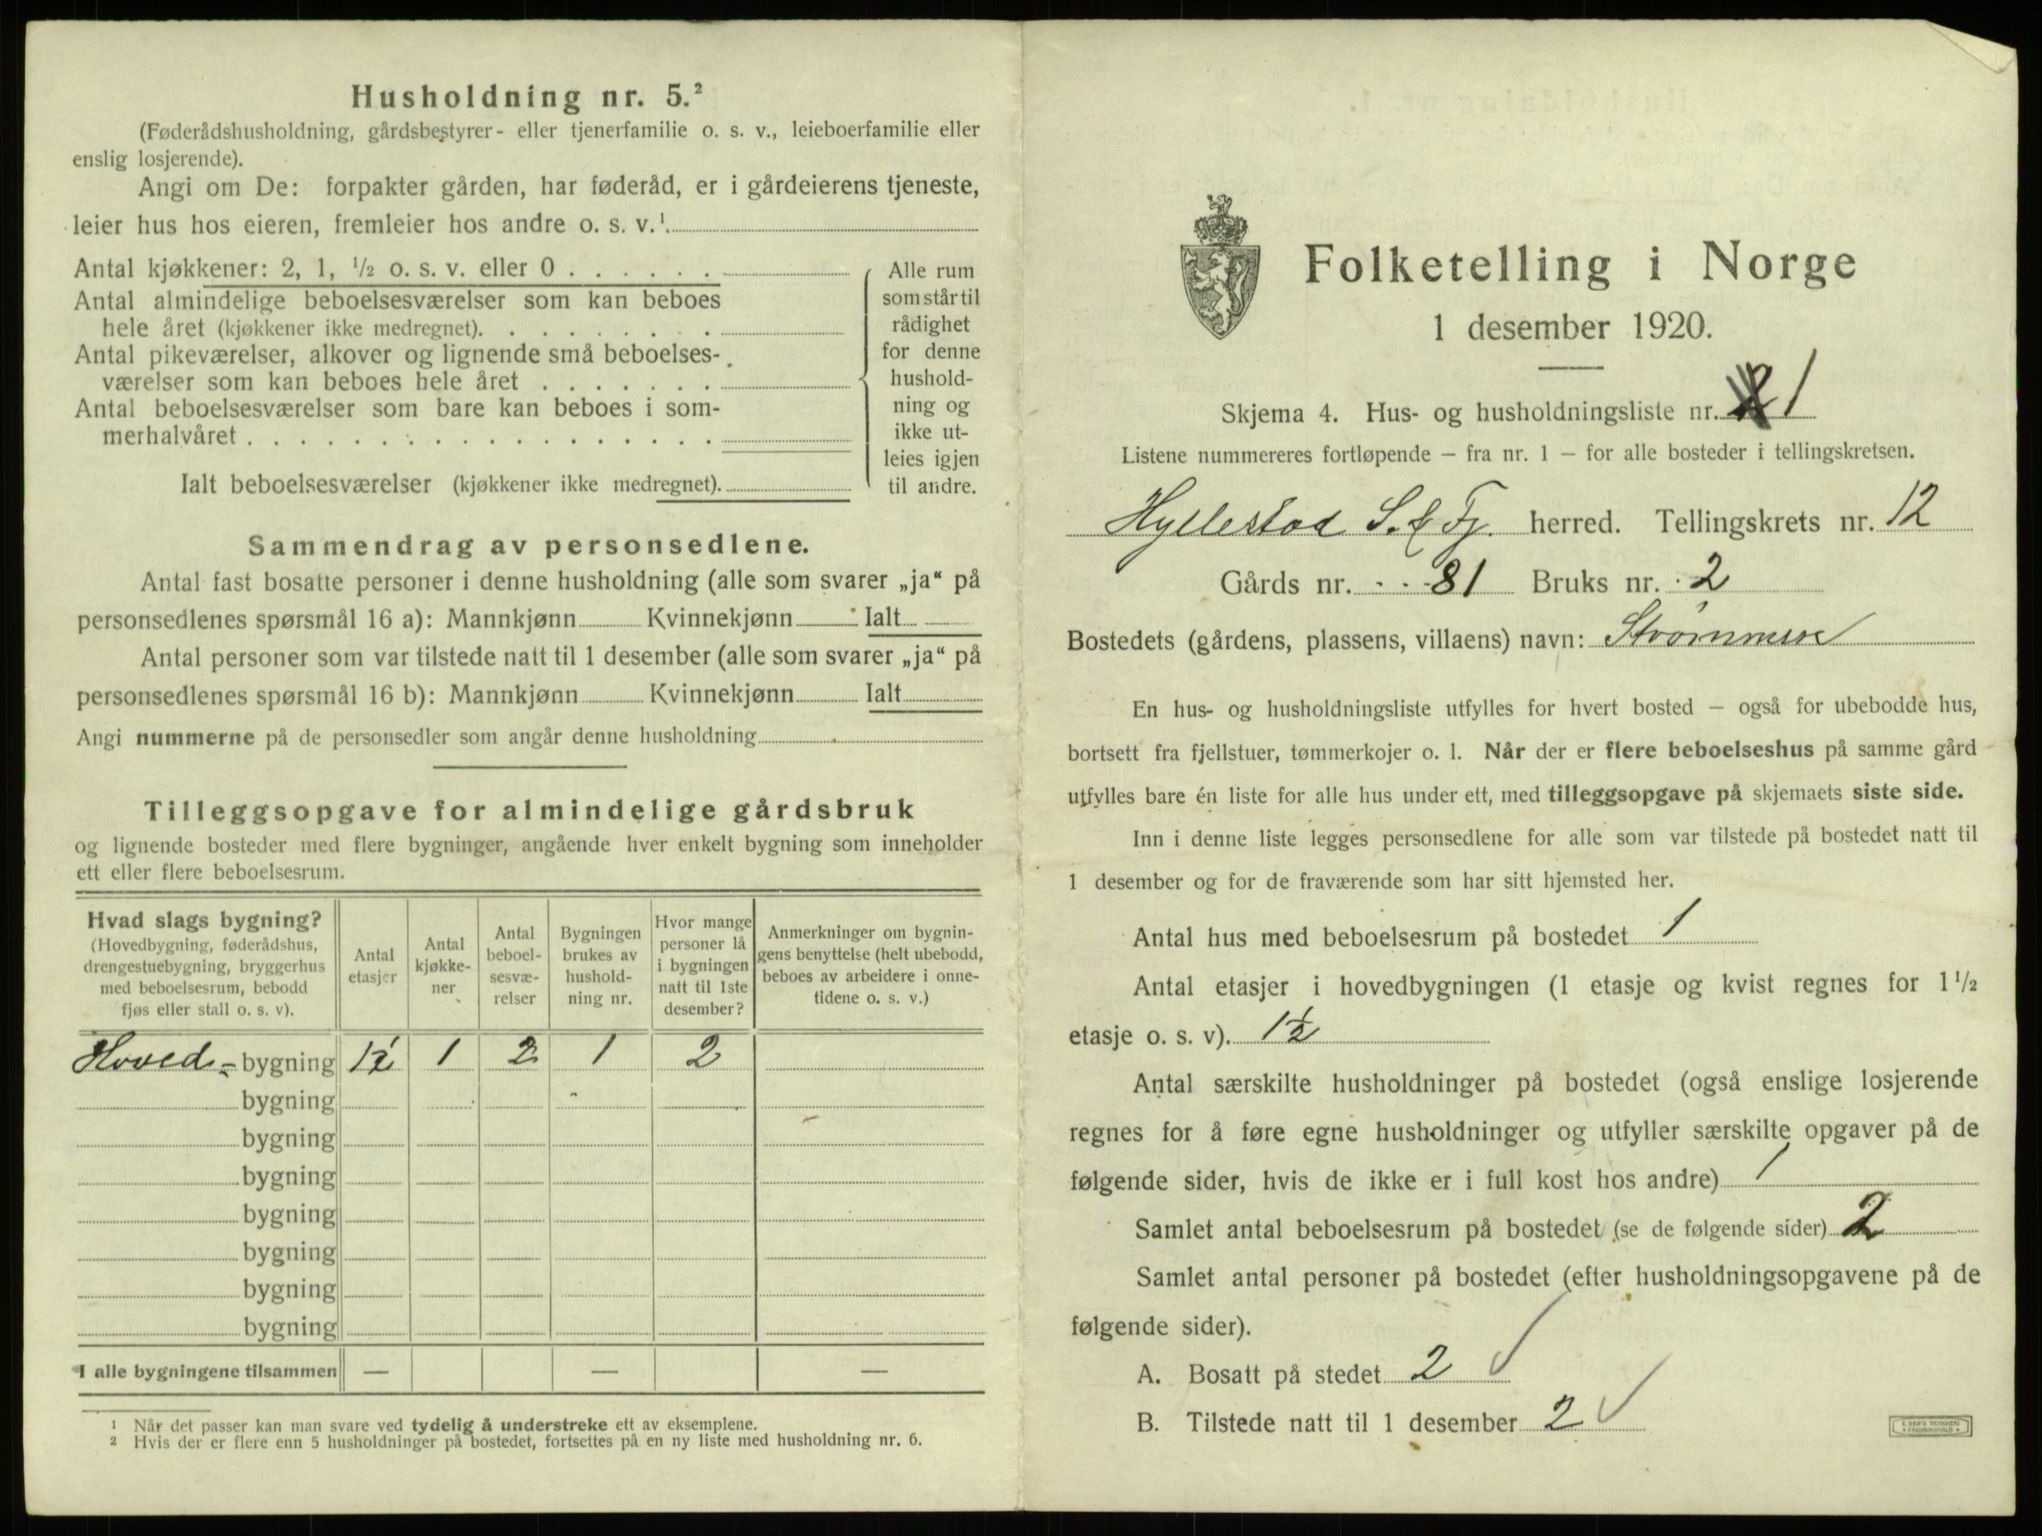 Husholdning nr. 5.²
(Føderådshusholdning, gårdsbestyrer- eller tjenerfamilie o. s. v., leieboerfamilie eller
enslig losjerende).
Angi om De: forpakter gården, har føderåd, er i gårdeierens tjeneste,
leier hus hos eieren, fremleier hos andre o. s. v.¹
Antal kjøkkener: 2, 1, ½ o. s. v. eller 0 . . . . . .
Antal almindelige beboelsesværelser som kan beboes
hele året (kjøkkener ikke medregnet). . . . . . . . .
Antal pikeværelser, alkover og lignende små beboelses-
værelser som kan beboes hele året . . . . . . .
Antal beboelsesværelser som bare kan beboes i som-
merhalvåret . . . . . . . . . . . . . . . . . .
Ialt beboelsesværelser (kjøkkener ikke medregnet).
Alle rum
som står til
rådighet
for denne
hushold-
ning og
ikke ut-
leies igjen
til andre.
Sammendrag av personsedlene.
Antal fast bosatte personer i denne husholdning (alle som svarer „ja“ på
personsedlenes spørsmål 16 a): Mannkjønn Kvinnekjønn Ialt
Antal personer som var tilstede natt til 1 desember (alle som svarer „ja“ på
personsedlenes spørsmål 16 b): Mannkjønn Kvinnekjønn Ialt
Angi nummerne på de personsedler som angår denne husholdning
Tilleggsopgave for almindelige gårdsbruk
og lignende bosteder med flere bygninger, angående hver enkelt bygning som inneholder
ett eller flere beboelsesrum.
Hvad slags bygning?
(Hovedbygning, føderådshus,
drengestuebygning, bryggerhus
med beboelsesrum, bebodd
fjøs eller stall o. s. v).
Antal
etasjer
Antal
kjøkke-
ner
Antal
beboel-
sesvæ-
relser
Bygningen
brukes av
hushold-
ning nr.
Hvor mange
personer lå
i bygningen
natt til 1ste
desember?
Anmerkninger om bygnin-
gens benyttelse (helt ubebodd,
beboes av arbeidere i onne-
tidene o. s. v.)
Hoved- bygning 1½ 1 2 1 2
bygning
bygning
bygning
bygning
bygning
bygning
bygning
I alle bygningene tilsammen — — —
¹ Når det passer kan man svare ved tydelig å understreke ett av eksemplene.
² Hvis der er flere enn 5 husholdninger på bostedet, fortsettes på en ny liste med husholdning nr. 6.
Folketelling i Norge
1 desember 1920.
Skjema 4. Hus- og husholdningsliste nr. 1
Listene nummereres fortløpende – fra nr. 1 – for alle bosteder i tellingskretsen.
Hyllestad S. & Fj. herred. Tellingskrets nr. 12
Gårds nr. 81 Bruks nr. 2
Bostedets (gårdens, plassens, villaens) navn: Strømmen
En hus- og husholdningsliste utfylles for hvert bosted – også for ubebodde hus,
bortsett fra fjellstuer, tømmerkojer o. l. Når der er flere beboelseshus på samme gård
utfylles bare én liste for alle hus under ett, med tilleggsopgave på skjemaets siste side.
Inn i denne liste legges personsedlene for alle som var tilstede på bostedet natt til
1 desember og for de fraværende som har sitt hjemsted her.
Antal hus med beboelsesrum på bostedet 1
Antal etasjer i hovedbygningen (1 etasje og kvist regnes for 1½
etasje o. s. v). 1½
Antal særskilte husholdninger på bostedet (også enslige losjerende
regnes for å føre egne husholdninger og utfyller særskilte opgaver på de
følgende sider, hvis de ikke er i full kost hos andre) 1
Samlet antal beboelsesrum på bostedet (se de følgende sider) 2
Samlet antal personer på bostedet (efter husholdningsopgavene på de
følgende sider).
A. Bosatt på stedet 2
B. Tilstede natt til 1 desember 2